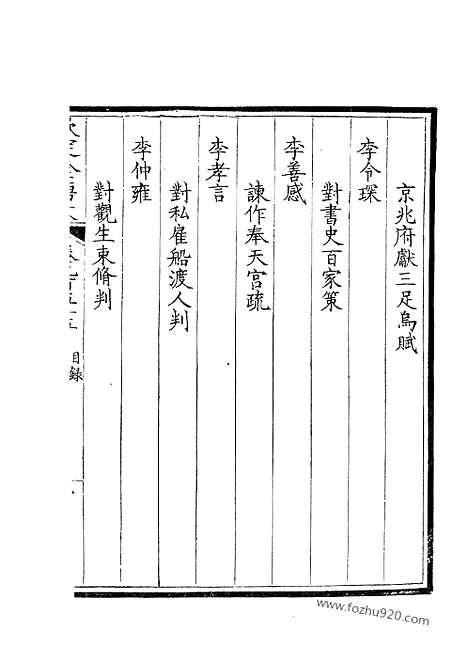 京兆府獻三足烏賦
李令琛
對書史百家策
李善感
諫作奉天宮疏
李孝言
對私雇船渡人判
李仲雍
對觀生束脩判
目錄
www.fozhu920.com